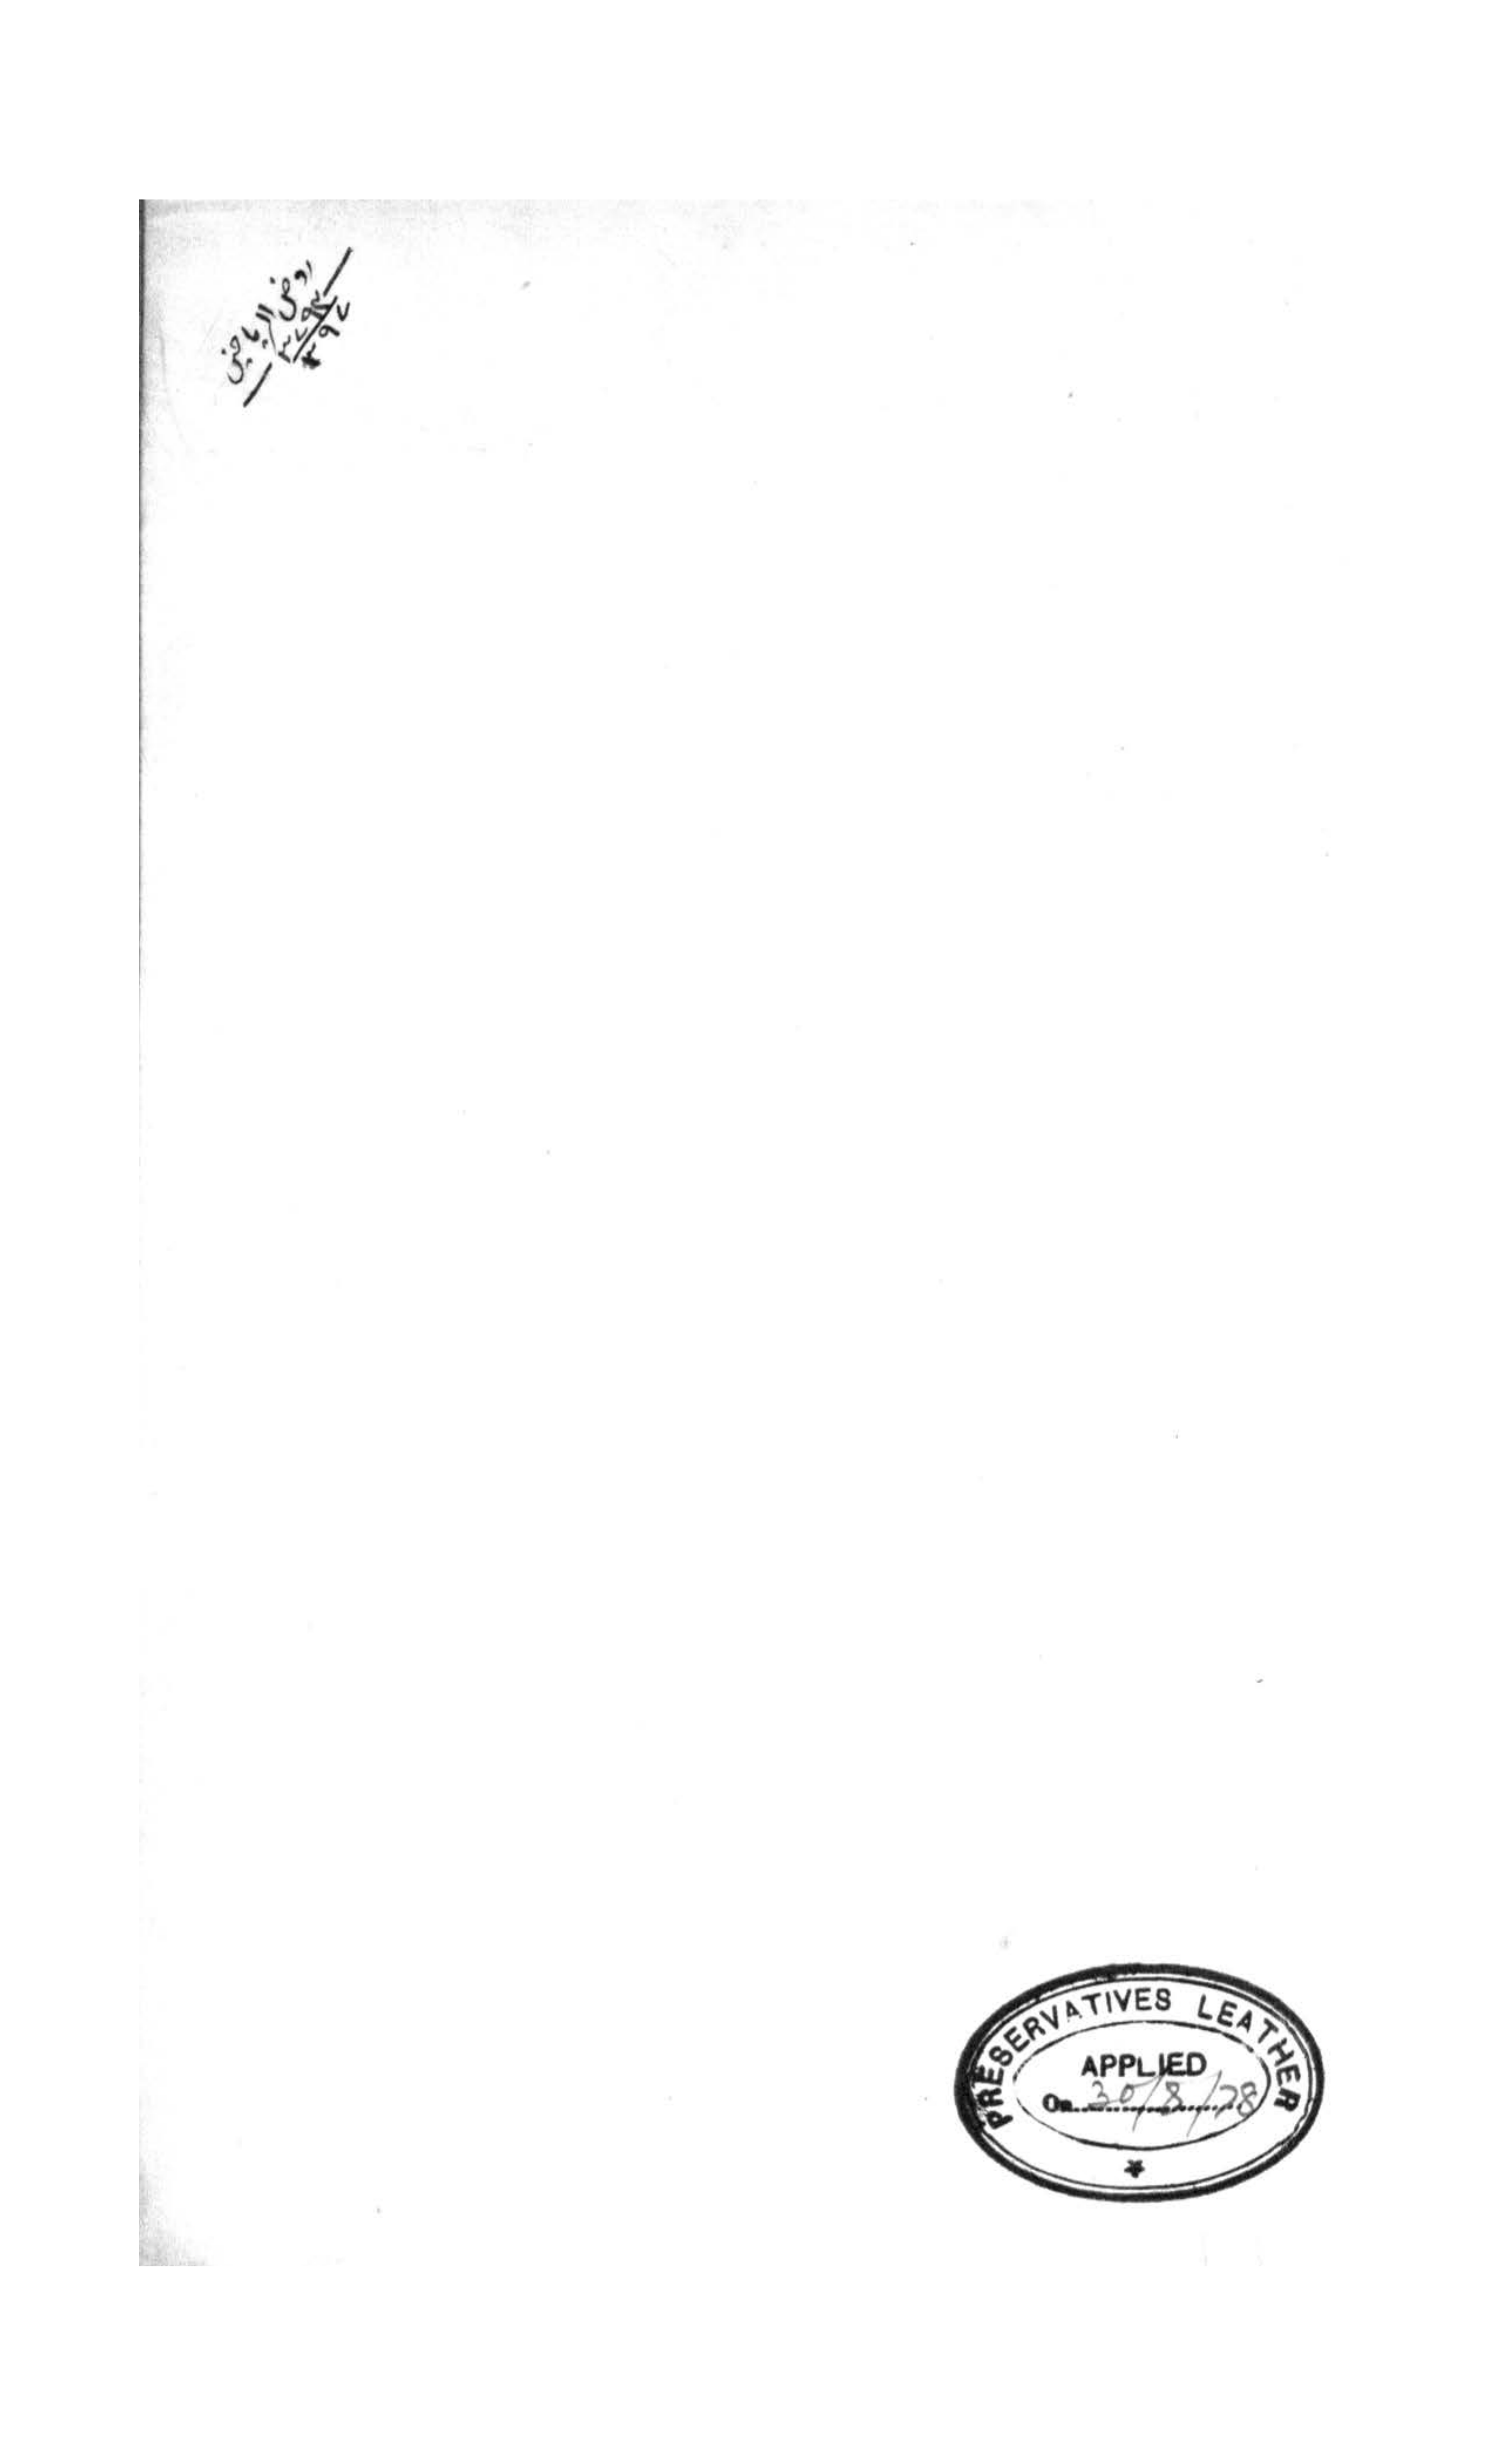 روض الریاحین
PRESERVATIVES LEATHER
APPLIED
On 30/8/78